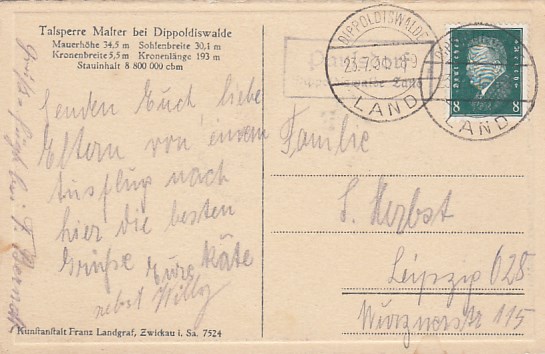 Talsperre Malter bei Dippoldiswalde
Mauerhöhe 34,5 m Sohlenbreite 30,1 m
Kronenbreite 5,5 m Kronenlänge 193 m
Stauinhalt 8 800 000 cbm
Senden Euch, liebe
Eltern von einem
Ausflug nach
hier die besten
Grüße Eure Käte
nebst Willy
Kunstanstalt Franz Landgraf, Zwickau i. Sa. 7524
DIPPOLDISWALDE
23.7.30.
LAND
LAND
8 8
Familie
S. Herbst
Leipzig O28
Wurznerstr 115